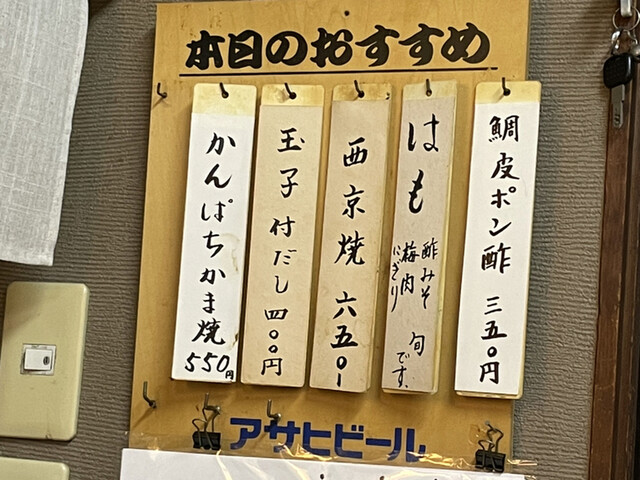 本日のおすすめ
鯛皮ポン酢 三五〇円
はも
酢みそ
梅肉
にぎり
旬です。
西京焼 六五〇ー
玉子付だし 四〇〇円
かんぱちかま焼 550円
アサヒビール